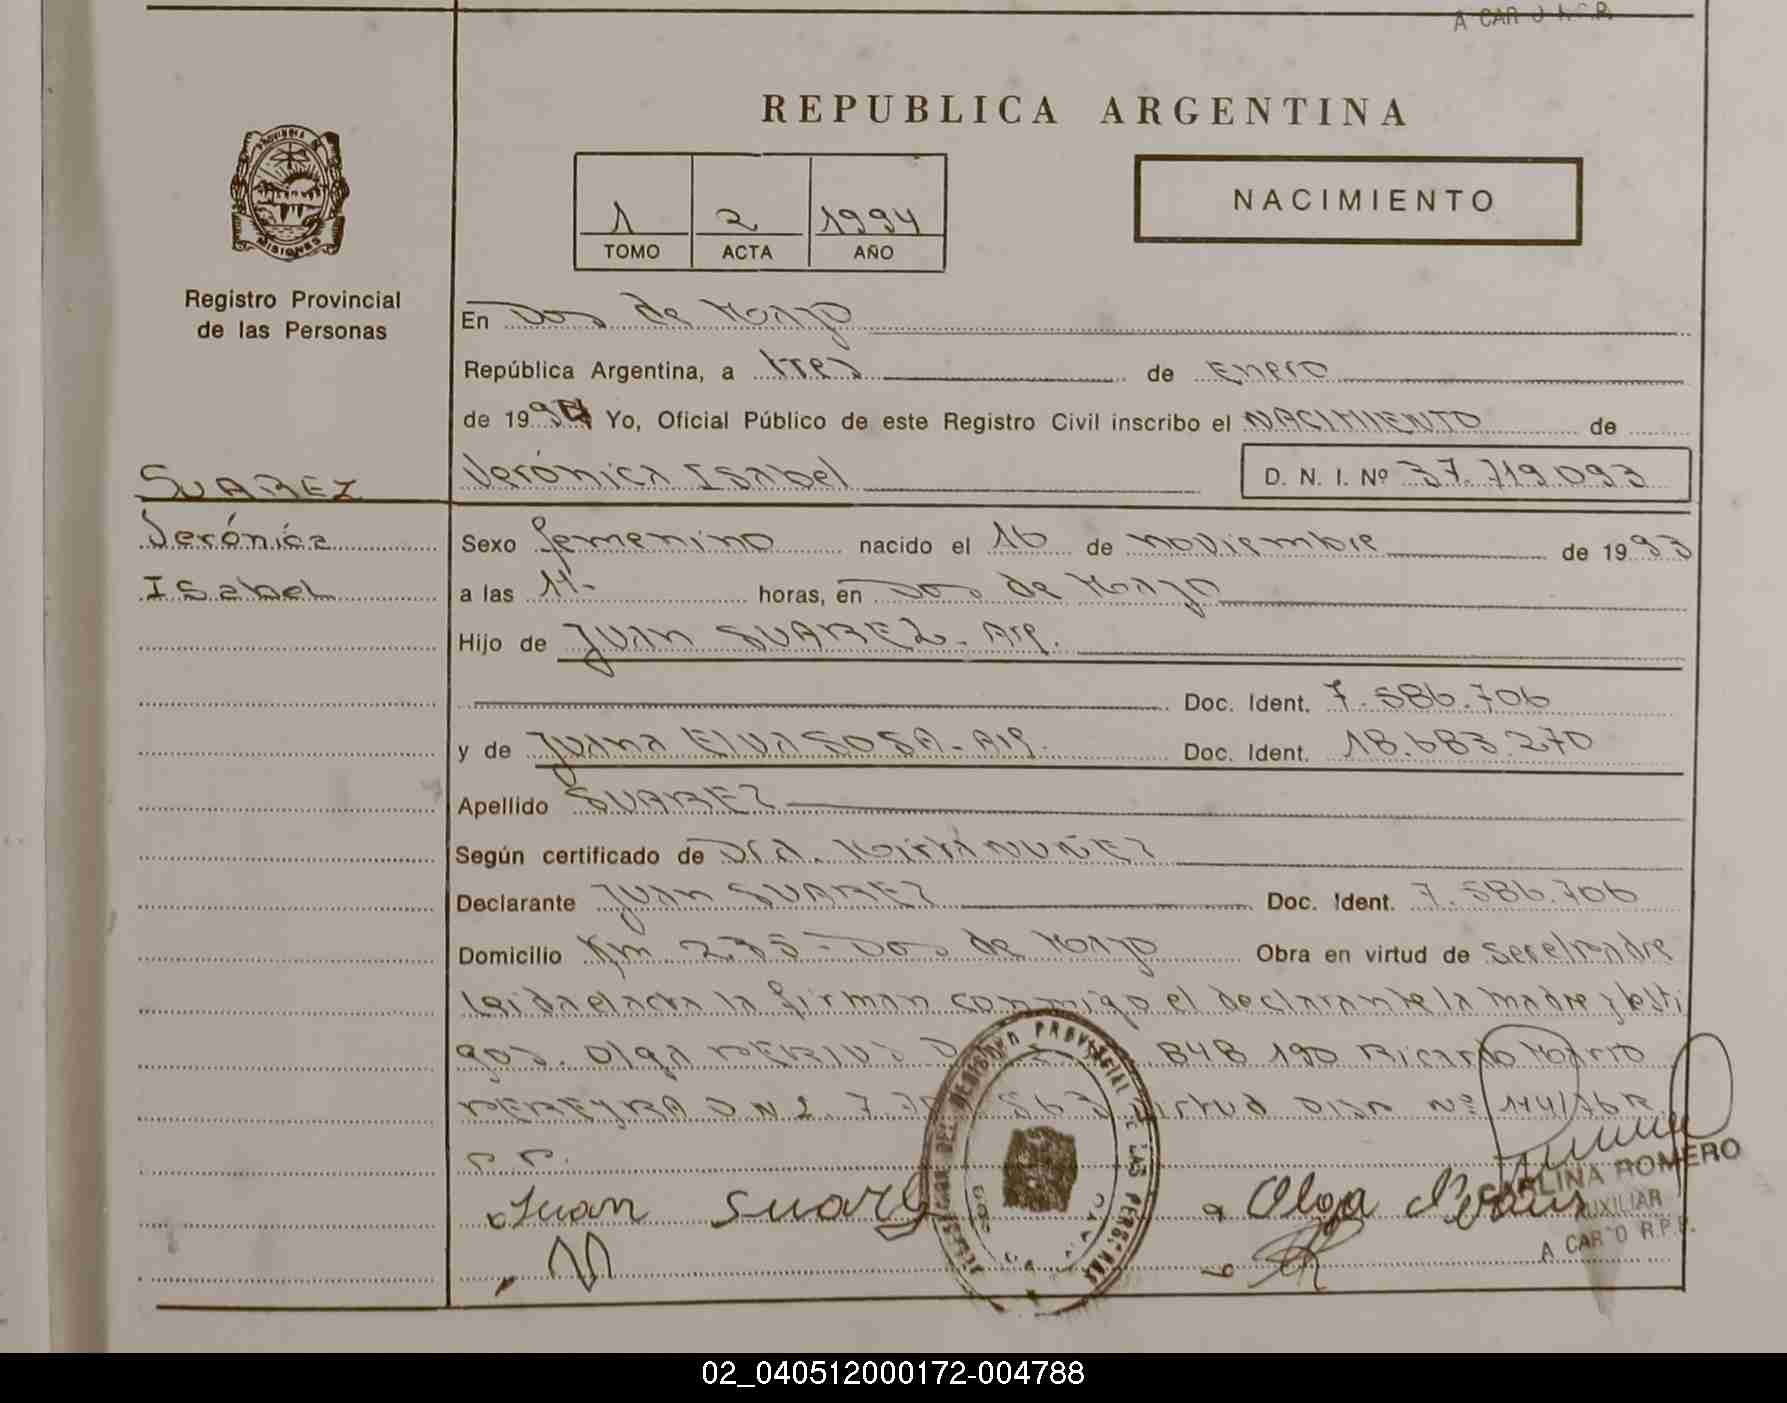 REPUBLICA ARGENTINA
PROVINCIA
MISIONES
1 2 1994
TOMO ACTA AÑO
NACIMIENTO
Registro Provincial
de las Personas
En Dos de Mayo
República Argentina, a tres de Enero
de 1994 Yo, Oficial Público de este Registro Civil inscribo el NACIMIENTO de
SUAREZ
Verónica Isabel D. N. I. Nº 37.719.093
Verónica
Isabel
Sexo femenino nacido el 16 de noviembre de 1993
a las 11- horas, en Dos de Mayo
Hijo de JUAN SUAREZ - Arg.
Doc. Ident. 7.586.706
y de Juana Elva SOSA - Arg. Doc. Ident. 18.683.270
Apellido SUAREZ
Según certificado de Dra. NUÑEZ
Declarante JUAN SUAREZ Doc. Ident. 7.586.706
Domicilio Km 275 - Dos de Mayo Obra en virtud de ser el padre
Leida el acta la firman conmigo el declarante la madre y testi
gos. Olga 848 190 Ricardo Mario
PEREYRA D N I 7.7 563 virtud Disp Nº 144/76 R
P P.
Juan Suarez
Olga
CAROLINA ROMERO
AUXILIAR
A CARGO R.P.P.
02_040512000172-004788